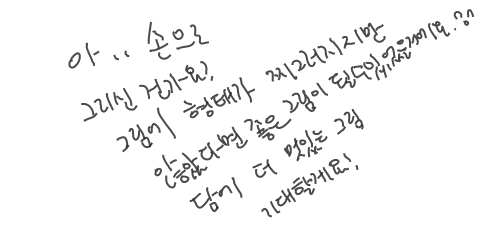 아.. 손으로
그리신 건가요?
그림이 형태가 찌그러지지만
않았다면 좋은 그림이 될 수 있었을텐데요.
담에 더 멋있는 그림
기대할게요!